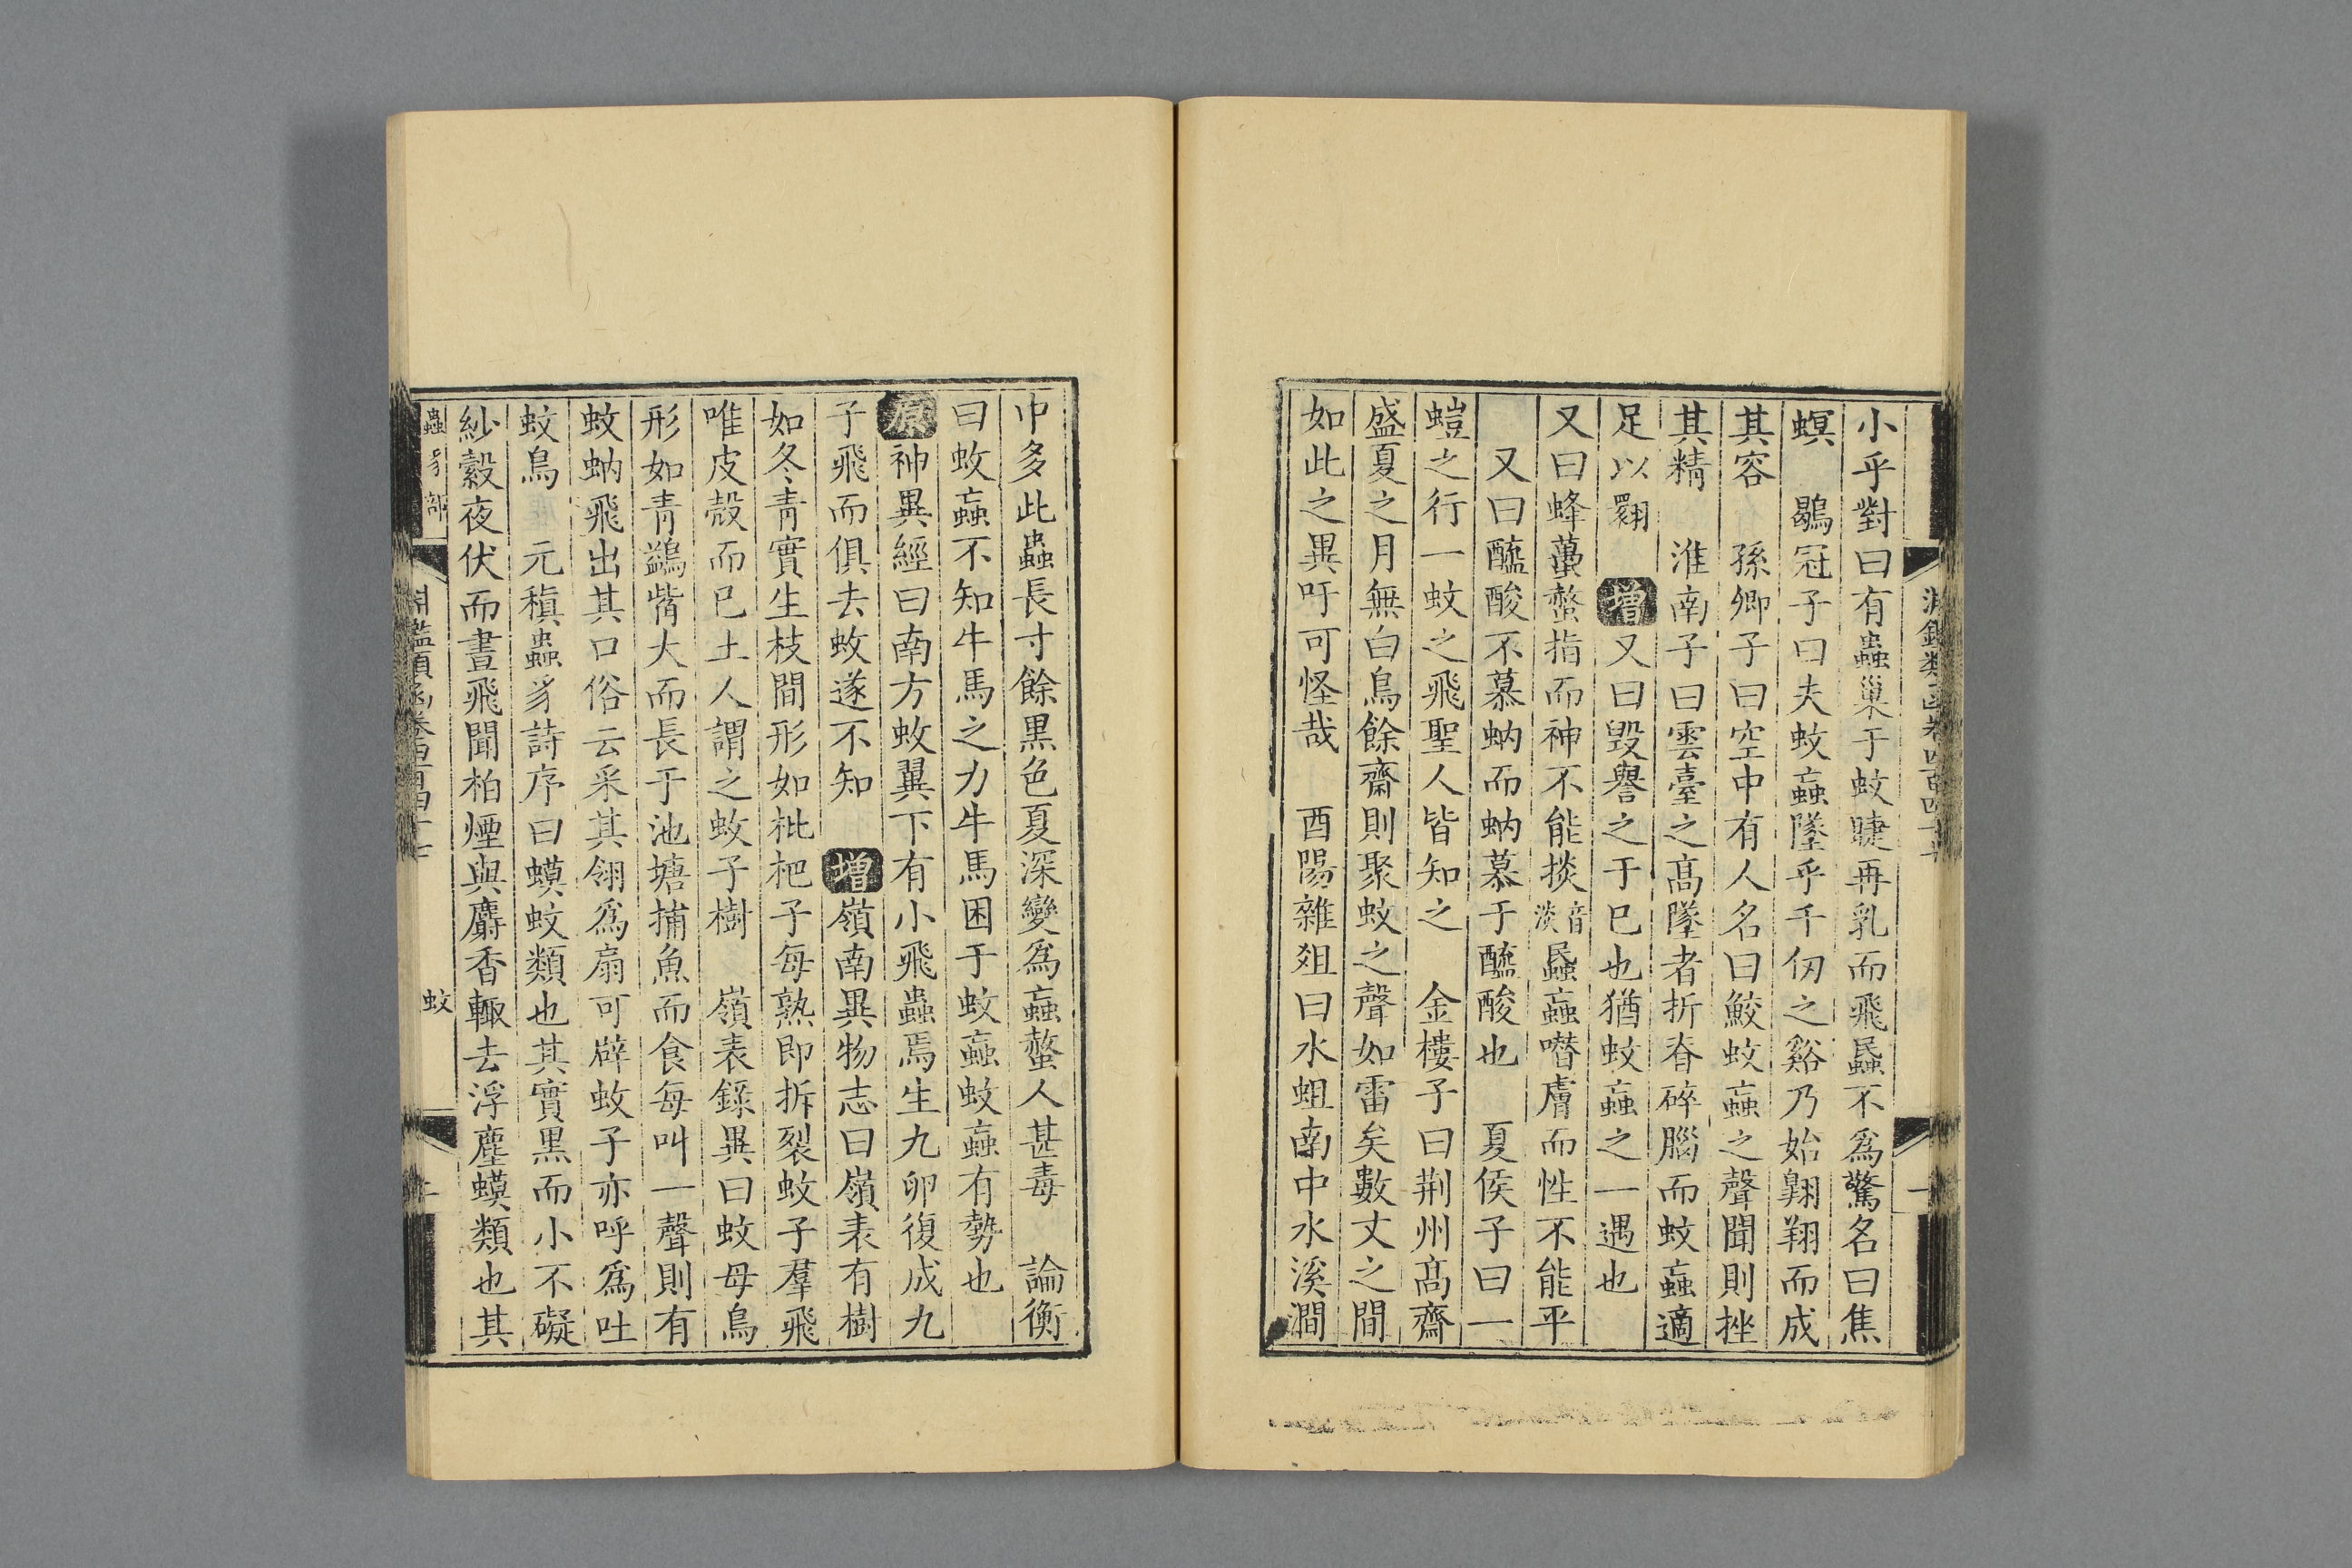 小乎對曰有蟲巢于蚊睫再乳而飛蟁不爲驚名曰焦
螟　鶡冠子曰夫蚊蝱墜乎千仞之谿乃始翺翔而成
其容　孫卿子曰空中有人名曰鮫蚊蝱之聲聞則挫
其精　淮南子曰雲臺之髙墜者折脊碎腦而蚊蝱適
足以翾　增又曰毀譽之于已也猶蚊蝱之一遇也
又曰蜂蠆螫指而神不能掞音淡蟁蝱噆膚而性不能平
又曰醯酸不慕蚋而蚋慕于醯酸也　夏侯子曰一
螘之行一蚊之飛聖人皆知之　金樓子曰荆州髙齋
盛夏之月無白鳥餘齋則聚蚊之聲如雷矣數丈之間
如此之異吁可怪哉　酉陽雜爼曰水蛆南中水溪澗
中多此蟲長寸餘黒色夏深變爲蝱螫人甚毒　論衡
曰蚊蝱不知牛馬之力牛馬困于蚊蝱蚊蝱有勢也
原神異經曰南方蚊翼下有小飛蟲焉生九卵復成九
子飛而俱去蚊遂不知　增嶺南異物志曰嶺表有樹
如冬青實生枝間形如枇杷子每熟即拆裂蚊子羣飛
唯皮殻而已土人謂之蚊子樹　嶺表錄異曰蚊母鳥
形如青鷁觜大而長于池塘捕魚而食每叫一聲則有
蚊蚋飛出其口俗云采其翎爲扇可辟蚊子亦呼爲吐
蚊鳥　元稹蟲豸詩序曰蟆蚊類也其實黒而小不礙
紗縠夜伏而晝飛聞柏煙與麝香輙去浮塵蟆類也其
蟲豸部
淵鑑類函卷四百四十七
蚊